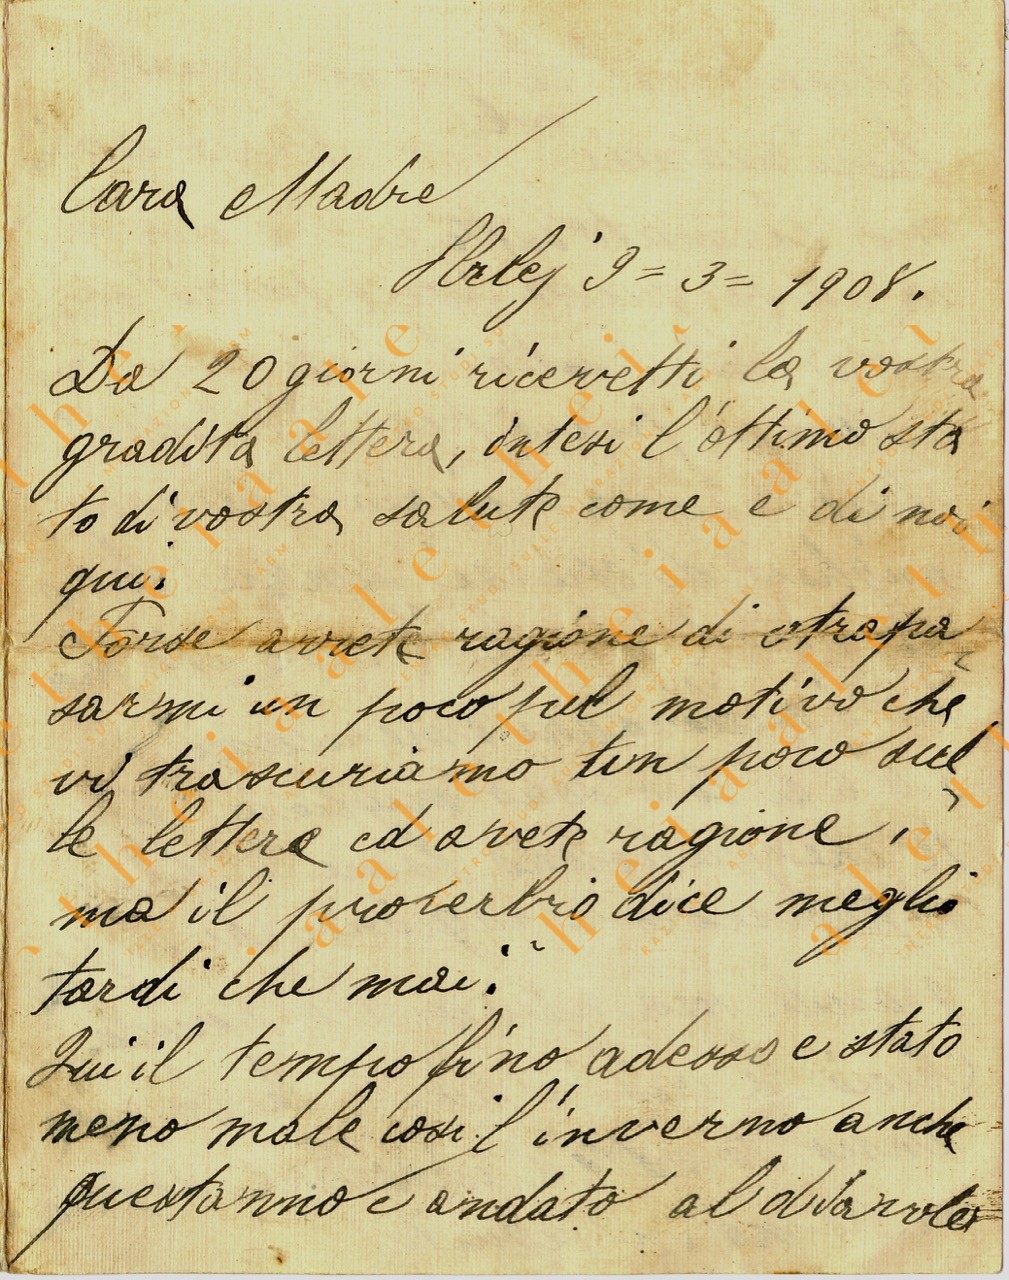 Cara Madre
Hrlej 9 = 3 = 1908.
Da 20 giorni ricevetti la vostra
gradita lettera, intesi l'ottimo sta
to di vostra salute come e di noi
qui.
Forse avvete ragione di strapa
sarmi un poco pel motivo che
vi trascuriamo un poco sul
le lettere ed avvete ragione,
ma il proverbio dice meglio
tardi che mai.
Qui il tempo fino adesso e stato
meno male cosi l'inverno anche
questanno e andato al diavolo